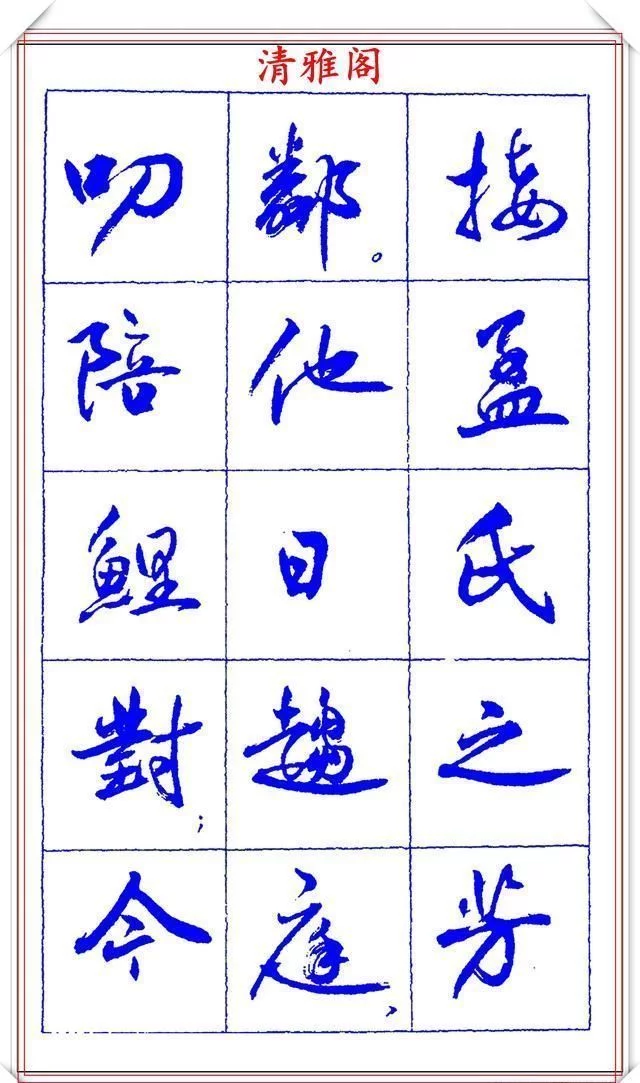 清雅阁
接孟氏之芳
鄰。他日趨庭、
叨陪鯉對；今